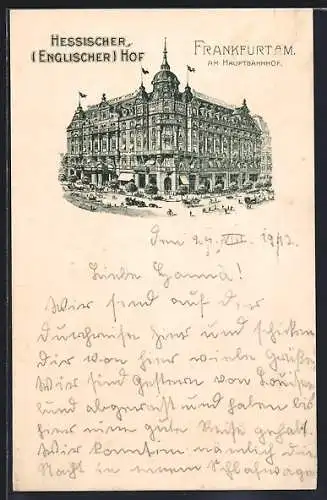 HESSISCHER
(ENGLISCHER) HOF
FRANKFURT A M.
AM HAUPTBAHNHOF.
den 27. VIII. 1912.
Liebe Hanna!
Wir send auf der
Durchreise hier und schicken
dir von hier viele Grüße.
Wir sind gestern von
und abgereist und haben bis
her eine gute Reise gehabt.
Wir konnten nämlich die
Nacht in einem Schlafwage